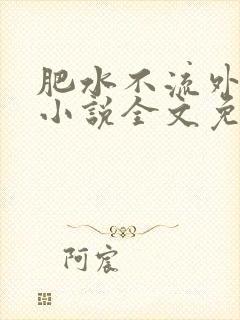 肥水不流外
小説全文免
阿宸